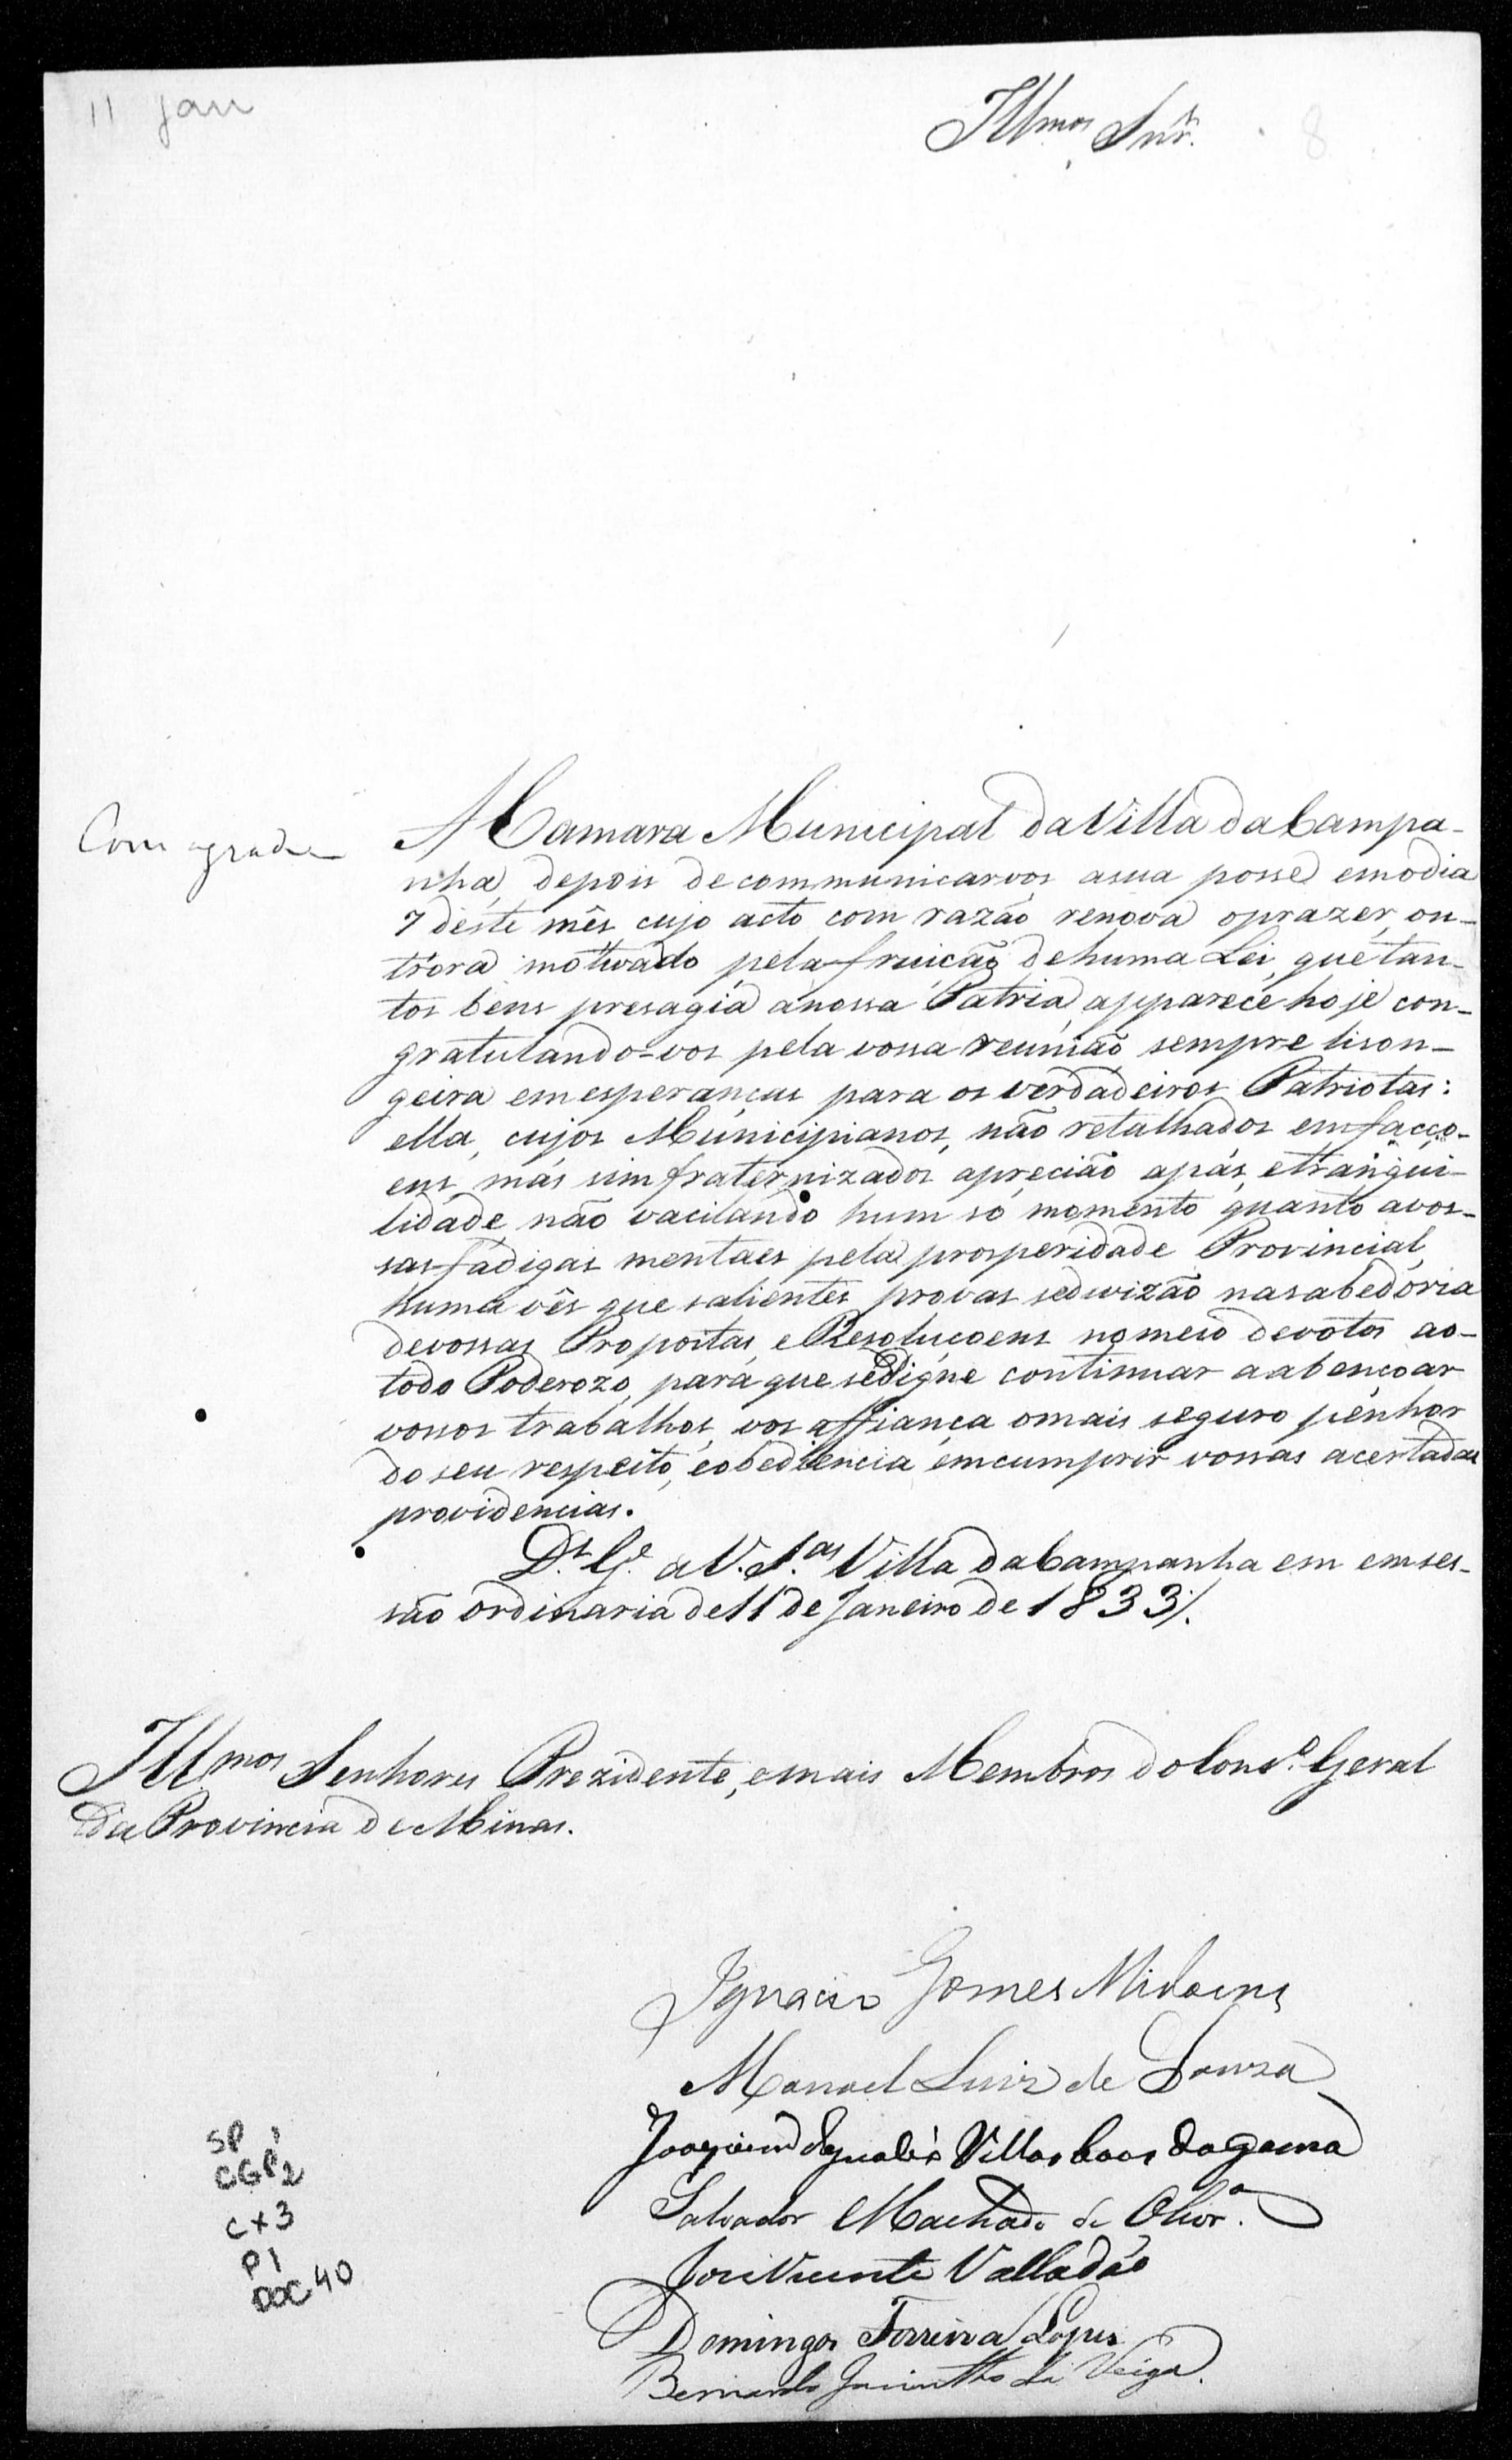 11 jan
Illmos Snr.es
8
Com agrado
A Camara Municipal da Villa da Campa-
nha, depois de communicarvos asua posse emodia
7 deste mês cujo acto com razão renova oprazer, ou-
trora motivado pela fruição dehuma Lei, que tan-
tos bens presagia anossa Patria, apparece hoje con-
gratulando-vos pela vossa reunião sempre lison-
geira emesperanças para os verdadeiros Patriotas:
ella, cujos Municipianos, não retalhados emfacço-
ens, más sim fraternizados aprecião apás, etranqui-
lidade, não vacilando hum só momento quanto avos-
sas fadigas mentaes pela prosperidade Provincial,
huma vês que salientes provas sedivizão nasabedoria
devossas Propostas, e Resoluçoens nomeio devotos ao-
todo Poderozo, para que sedigne continuar aabençoar
vossos trabalhos, vos affiança omais seguro penhor
do seu respeito, eobediencia emcumprir vossas acertadas
providencias.
D.s G.e a V.S.as Villa da Campanha em emses-
são ordinaria de 11 de Janeiro de 1833/.
Illmos Senhores Prezidente, emais Membros do Cons.o Geral
da Provincia de Minas.
Ignacio Gomes Midoens
Manoel Luiz de Souza
Joaquim Ignacio Villas boas da gama
Salvador Machado de Olivr.a
José Vicente Valladão
Domingos Ferreira Lopes
Bernardo Jacintho da Veiga.
SP 1
CGP2
CX3
P1
DOC 40